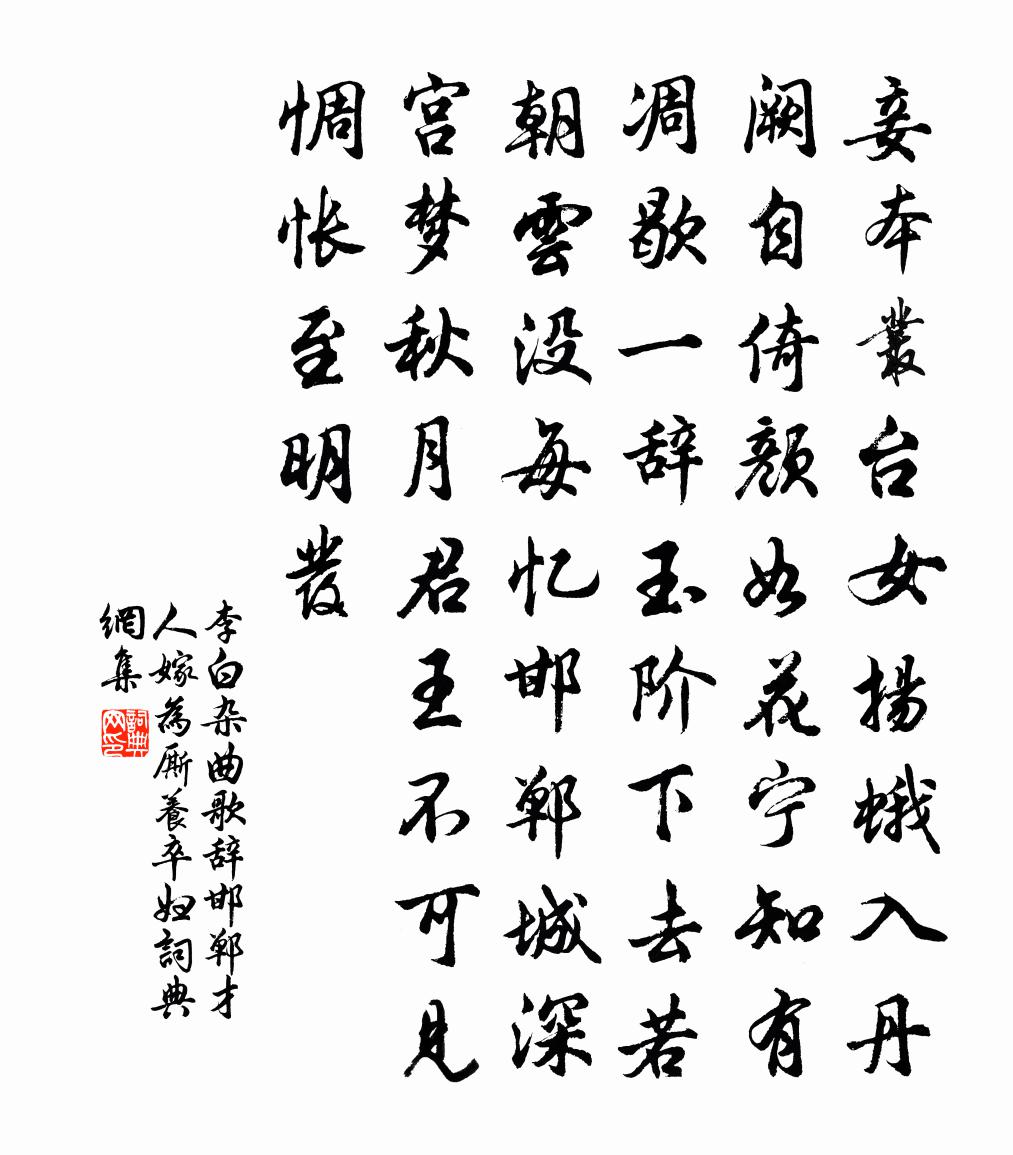 妾本叢台女揚蛾入丹
阙自倚颜如花宁知有
凋歇一辞玉阶下去若
朝雲没每忆邯郸城深
宫梦秋月君王不可见
惆怅至明發
李白杂曲歌辞邯郸才
人嫁為厮養卒妇詞典
網集
詞典
网印